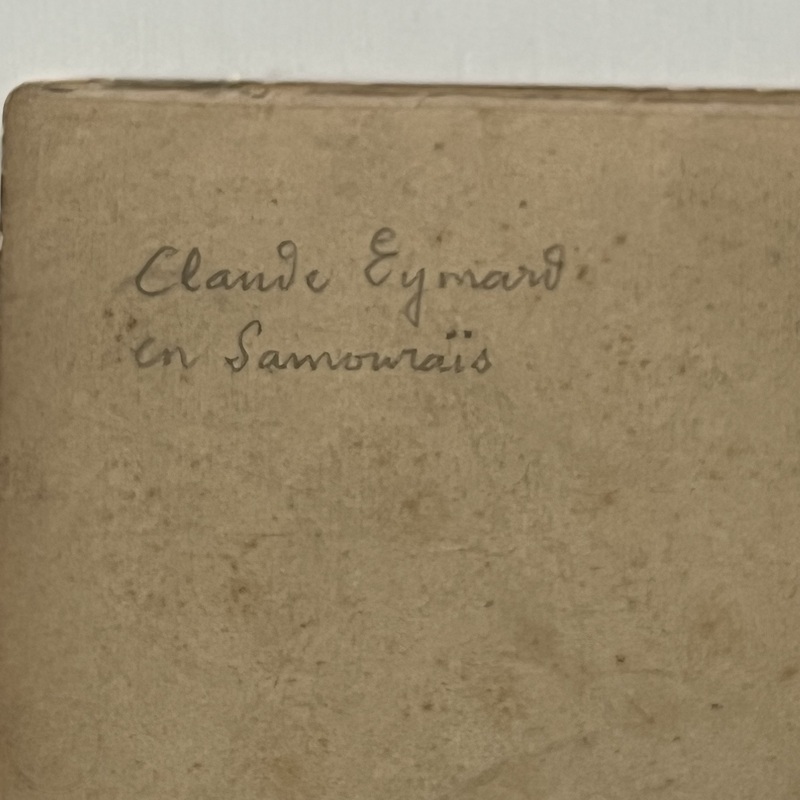 Claude Eymard
en Samouraïs